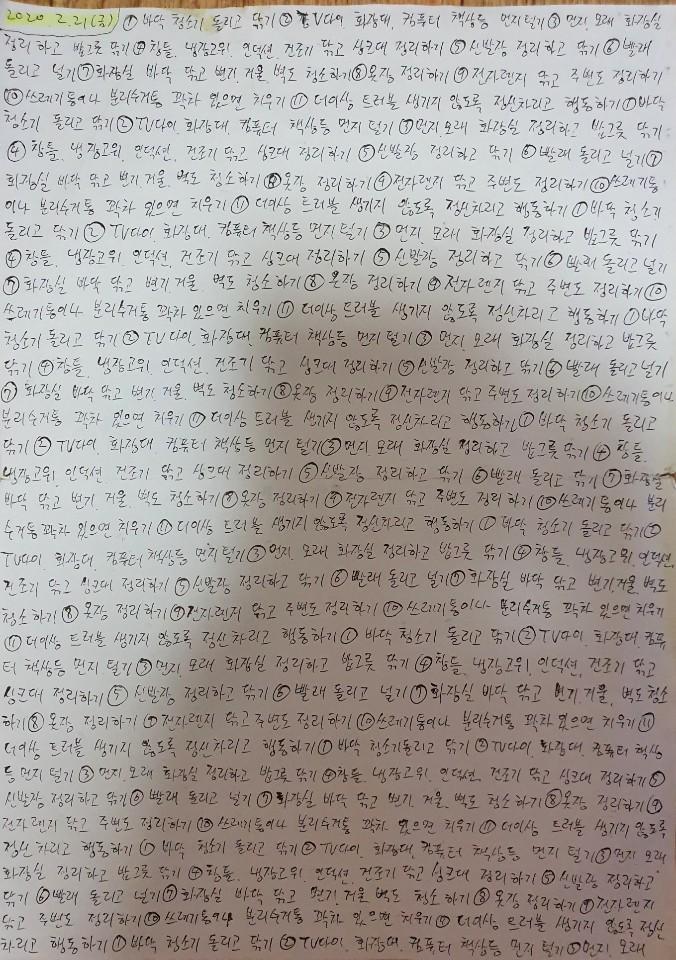 2020. 2.21(금) ① 바닥 청소기 돌리고 닦기 ② TV다이, 화장대, 컴퓨터 책상등 먼지털기 ③ 먼지, 모래 화장실
정리하고 밥그릇 닦기 ④ 창틀, 냉장고위, 인덕션, 건조기 닦고 싱크대 정리하기 ⑤ 신발장 정리하고 닦기 ⑥ 빨래
돌리고 널기 ⑦ 화장실 바닥 닦고 변기, 거울, 벽도 청소하기 ⑧ 옷장 정리하기 ⑨ 전자렌지 닦고 주변도 정리하기
⑩ 쓰레기통이나 분리수거통 꽉차 있으면 치우기 ⑪ 더이상 트러블 생기지 않도록 정신차리고 행동하기 ① 바닥
청소기 돌리고 닦기 ② TV다이, 화장대, 컴퓨터 책상등 먼지 털기 ③ 먼지, 모래 화장실 정리하고 밥그릇 닦기
④ 창틀, 냉장고위, 인덕션, 건조기 닦고 싱크대 정리하기 ⑤ 신발장 정리하고 닦기 ⑥ 빨래 돌리고 널기 ⑦
화장실 바닥 닦고 변기, 거울, 벽도 청소하기 ⑧ 옷장 정리하기 ⑨ 전자렌지 닦고 주변도 정리하기 ⑩ 쓰레기통
이나 분리수거통 꽉차 있으면 치우기 ⑪ 더이상 트러블 생기지 않도록 정신차리고 행동하기 ① 바닥 청소기
돌리고 닦기 ② TV다이, 화장대, 컴퓨터 책상등 먼지 털기 ③ 먼지, 모래 화장실 정리하고 밥그릇 닦기
④ 창틀, 냉장고위, 인덕션, 건조기 닦고 싱크대 정리하기 ⑤ 신발장 정리하고 닦기 ⑥ 빨래 돌리고 널기
⑦ 화장실 바닥 닦고 변기, 거울, 벽도 청소하기 ⑧ 옷장 정리하기 ⑨ 전자렌지 닦고 주변도 정리하기 ⑩
쓰레기통이나 분리수거통 꽉차 있으면 치우기 ⑪ 더이상 트러블 생기지 않도록 정신차리고 행동하기 ① 바닥
청소기 돌리고 닦기 ② TV다이, 화장대, 컴퓨터 책상등 먼지 털기 ③ 먼지, 모래 화장실 정리하고 밥그릇
닦기 ④ 창틀, 냉장고위, 인덕션, 건조기 닦고 싱크대 정리하기 ⑤ 신발장 정리하고 닦기 ⑥ 빨래 돌리고 널기
⑦ 화장실 바닥 닦고 변기, 거울, 벽도 청소하기 ⑧ 옷장 정리하기 ⑨ 전자렌지 닦고 주변도 정리하기 ⑩ 쓰레기통이나
분리수거통 꽉차 있으면 치우기 ⑪ 더이상 트러블 생기지 않도록 정신차리고 행동하기 ① 바닥 청소기 돌리고
닦기 ② TV다이, 화장대, 컴퓨터 책상등 먼지 털기 ③ 먼지, 모래 화장실 정리하고 밥그릇 닦기 ④ 창틀,
냉장고위, 인덕션, 건조기 닦고 싱크대 정리하기 ⑤ 신발장 정리하고 닦기 ⑥ 빨래 돌리고 닦기 ⑦ 화장실
바닥 닦고 변기, 거울, 벽도 청소하기 ⑧ 옷장 정리하기 ⑨ 전자렌지 닦고 주변도 정리하기 ⑩ 쓰레기통이나 분리
수거통 꽉차 있으면 치우기 ⑪ 더이상 트러블 생기지 않도록 정신차리고 행동하기 ① 바닥 청소기 돌리고 닦기 ②
TV다이, 화장대, 컴퓨터 책상등 먼지 털기 ③ 먼지, 모래 화장실 정리하고 밥그릇 닦기 ④ 창틀, 냉장고위, 인덕션,
건조기 닦고 싱크대 정리하기 ⑤ 신발장 정리하고 닦기 ⑥ 빨래 돌리고 널기 ⑦ 화장실 바닥 닦고 변기, 거울, 벽도
청소하기 ⑧ 옷장 정리하기 ⑨ 전자렌지 닦고 주변도 정리하기 ⑩ 쓰레기통이나 분리수거통 꽉차 있으면 치우기
⑪ 더이상 트러블 생기지 않도록 정신차리고 행동하기 ① 바닥 청소기 돌리고 닦기 ② TV다이, 화장대, 컴퓨
터 책상등 먼지 털기 ③ 먼지, 모래 화장실 정리하고 밥그릇 닦기 ④ 창틀, 냉장고위, 인덕션, 건조기 닦고
싱크대 정리하기 ⑤ 신발장 정리하고 닦기 ⑥ 빨래 돌리고 널기 ⑦ 화장실 바닥 닦고 변기, 거울, 벽도 청소
하기 ⑧ 옷장 정리하기 ⑨ 전자렌지 닦고 주변도 정리하기 ⑩ 쓰레기통이나 분리수거통 꽉차 있으면 치우기 ⑪
더이상 트러블 생기지 않도록 정신차리고 행동하기 ① 바닥 청소기 돌리고 닦기 ② TV다이, 화장대, 컴퓨터 책상
등 먼지 털기 ③ 먼지, 모래 화장실 정리하고 밥그릇 닦기 ④ 창틀, 냉장고위, 인덕션, 건조기 닦고 싱크대 정리하기 ⑤
신발장 정리하고 닦기 ⑥ 빨래 돌리고 널기 ⑦ 화장실 바닥 닦고 변기, 거울, 벽도 청소하기 ⑧ 옷장 정리하기 ⑨
전자렌지 닦고 주변도 정리하기 ⑩ 쓰레기통이나 분리수거통 꽉차 있으면 치우기 ⑪ 더이상 트러블 생기지 않도록
정신차리고 행동하기 ① 바닥 청소기 돌리고 닦기 ② TV다이, 화장대, 컴퓨터 책상등 먼지 털기 ③ 먼지 모래
화장실 정리하고 밥그릇 닦기 ④ 창틀, 냉장고위, 인덕션, 건조기 닦고 싱크대 정리하기 ⑤ 신발장 정리하고
닦기 ⑥ 빨래 돌리고 널기 ⑦ 화장실 바닥 닦고 변기, 거울, 벽도 청소하기 ⑧ 옷장 정리하기 ⑨ 전자렌지
닦고 주변도 정리하기 ⑩ 쓰레기통이나 분리수거통 꽉차 있으면 치우기 ⑪ 더이상 트러블 생기지 않도록 정신
차리고 행동하기 ① 바닥 청소기 돌리고 닦기 ② TV다이, 화장대, 컴퓨터 책상등 먼지 털기 ③ 먼지, 모래